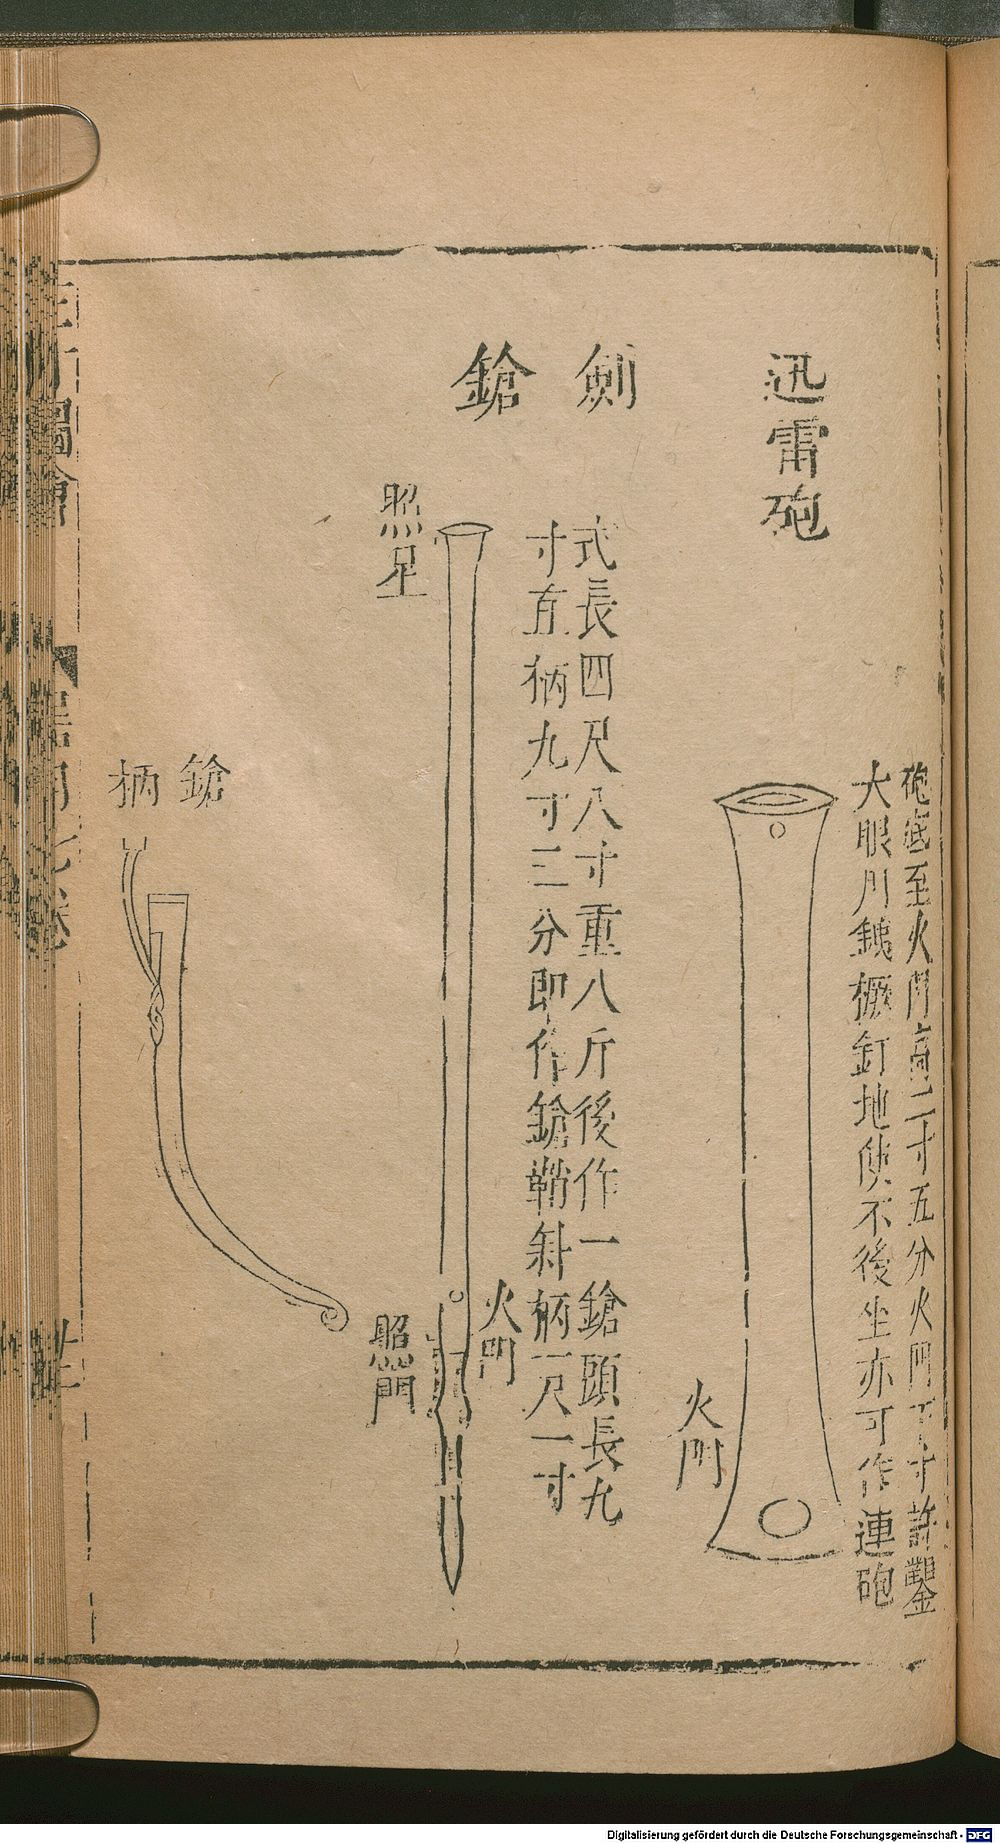 迅雷砲
砲底至火門高二寸五分火門下寸許鑿
大眼用鐵橛釘地使不後坐亦可作連砲
火門
劍鎗
式長四尺八寸重八斤後作一鎗頭長九
寸直柄九寸三分即作鎗鞘斜柄一尺一寸
火門
照星
照門
鎗柄
三才圖會
器用七卷
Digitalisierung gefördert durch die Deutsche Forschungsgemeinschaft - DFG